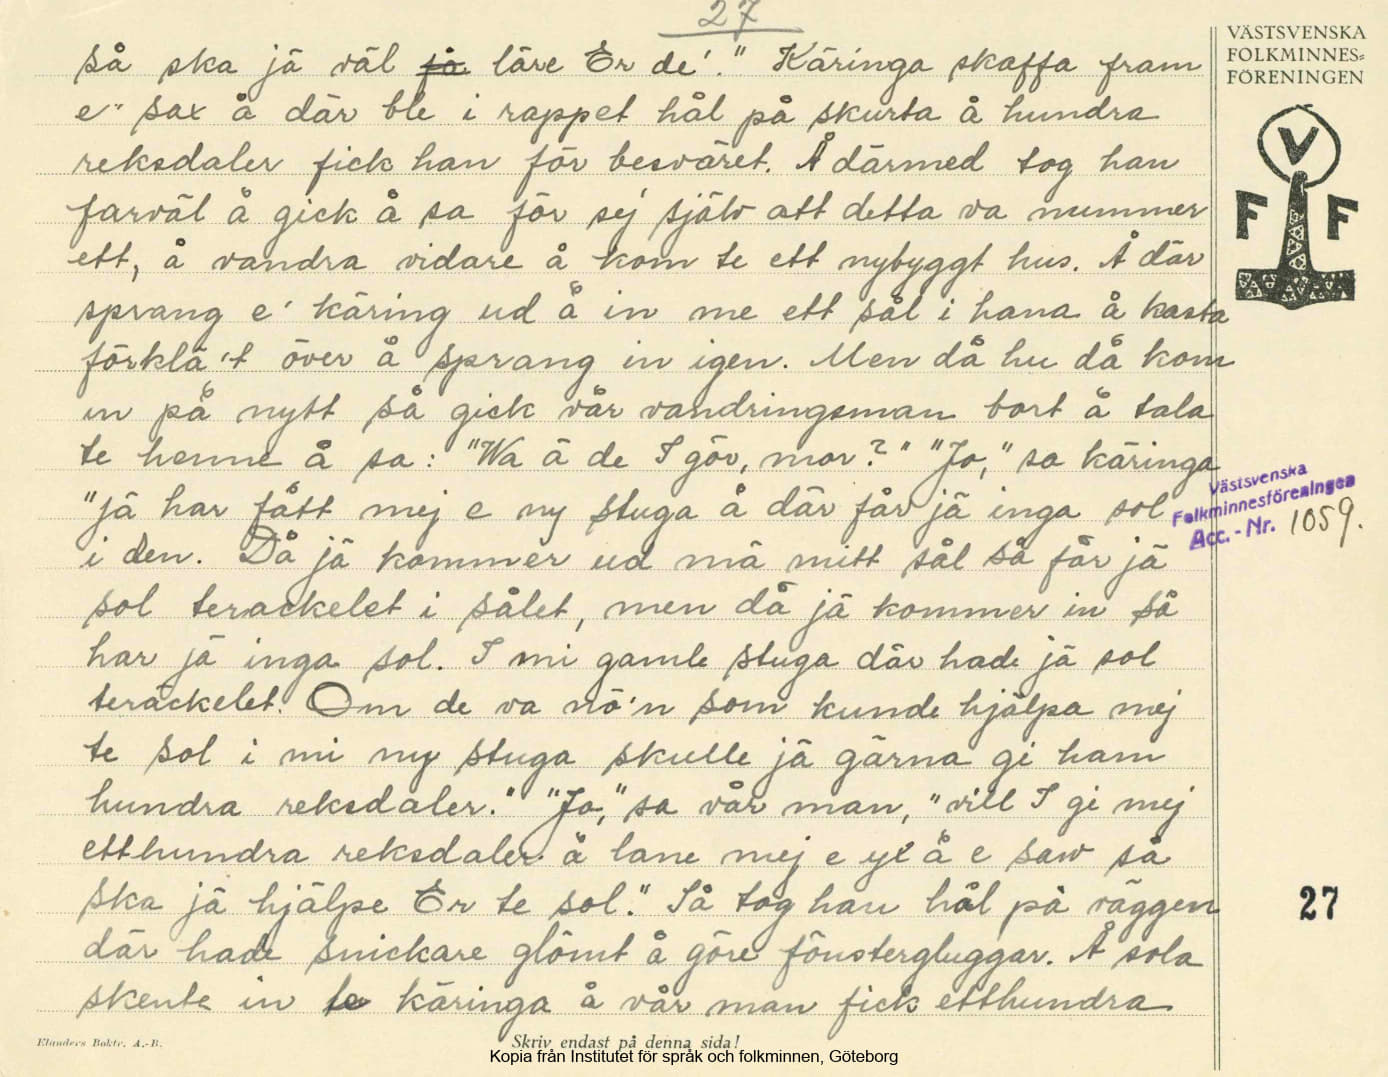 27
VÄSTSVENSKA
FOLKMINNES=
FÖRENINGEN
V
F F
så ska jä väl få läre Er de'." Käringa skaffa fram
e" sax å där ble i rappet hål på skurta å hundra
reksdaler fick han för besväret. Å därmed tog han
farväl å gick å sa för sej själv att detta va nummer
ett, å vandra vidare å kom te ett nybyggt hus. Å där
sprang e' käring ud å in me ett sål i hana å kasta
förklä't över å sprang in igen. Men då hu då kom
in på nytt så gick vår vandringsman bort å tala
te henne å sa: "Wa ä de I gör, mor?" "Jo," sa käringa
"jä har fått mej e ny stuga å där får jä inga sol
i den. Då jä kommer ud mä mitt sål så får jä
sol teräckelet i sålet, men då jä kommer in så
har jä inga sol. I mi gamle stuga där hade jä sol
teräckelet. Om de va nö'n som kunde hjälpa mej
te sol i mi ny stuga skulle jä gärna gi ham
hundra reksdaler." "Jo," sa vår man, "vill I gi mej
etthundra reksdaler å lane mej e yx å e saw så
ska jä hjälpe Er te sol." Så tog han hål på väggen
där hade snickare glömt å göre fönstergluggar. Å sola
skente in te käringa å vår man fick etthundra
Västsvenska
Folkminnesföreningen
Acc.-Nr. 1059.
27
Elanders Boktr. A.-B.
Skriv endast på denna sida!
Kopia från Institutet för språk och folkminnen, Göteborg